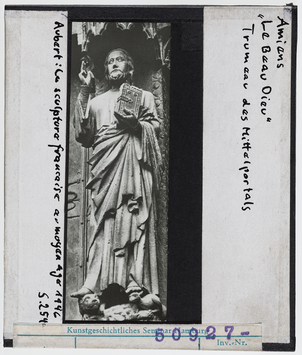 Amiens
"Le Beau Dieu"
Trumeau des Mittelportals
Aubert: La sculpture française au moyen âge 1946
S. 254
Kunstgeschichtliches Seminar Hamburg
50927-
Inv.-Nr.